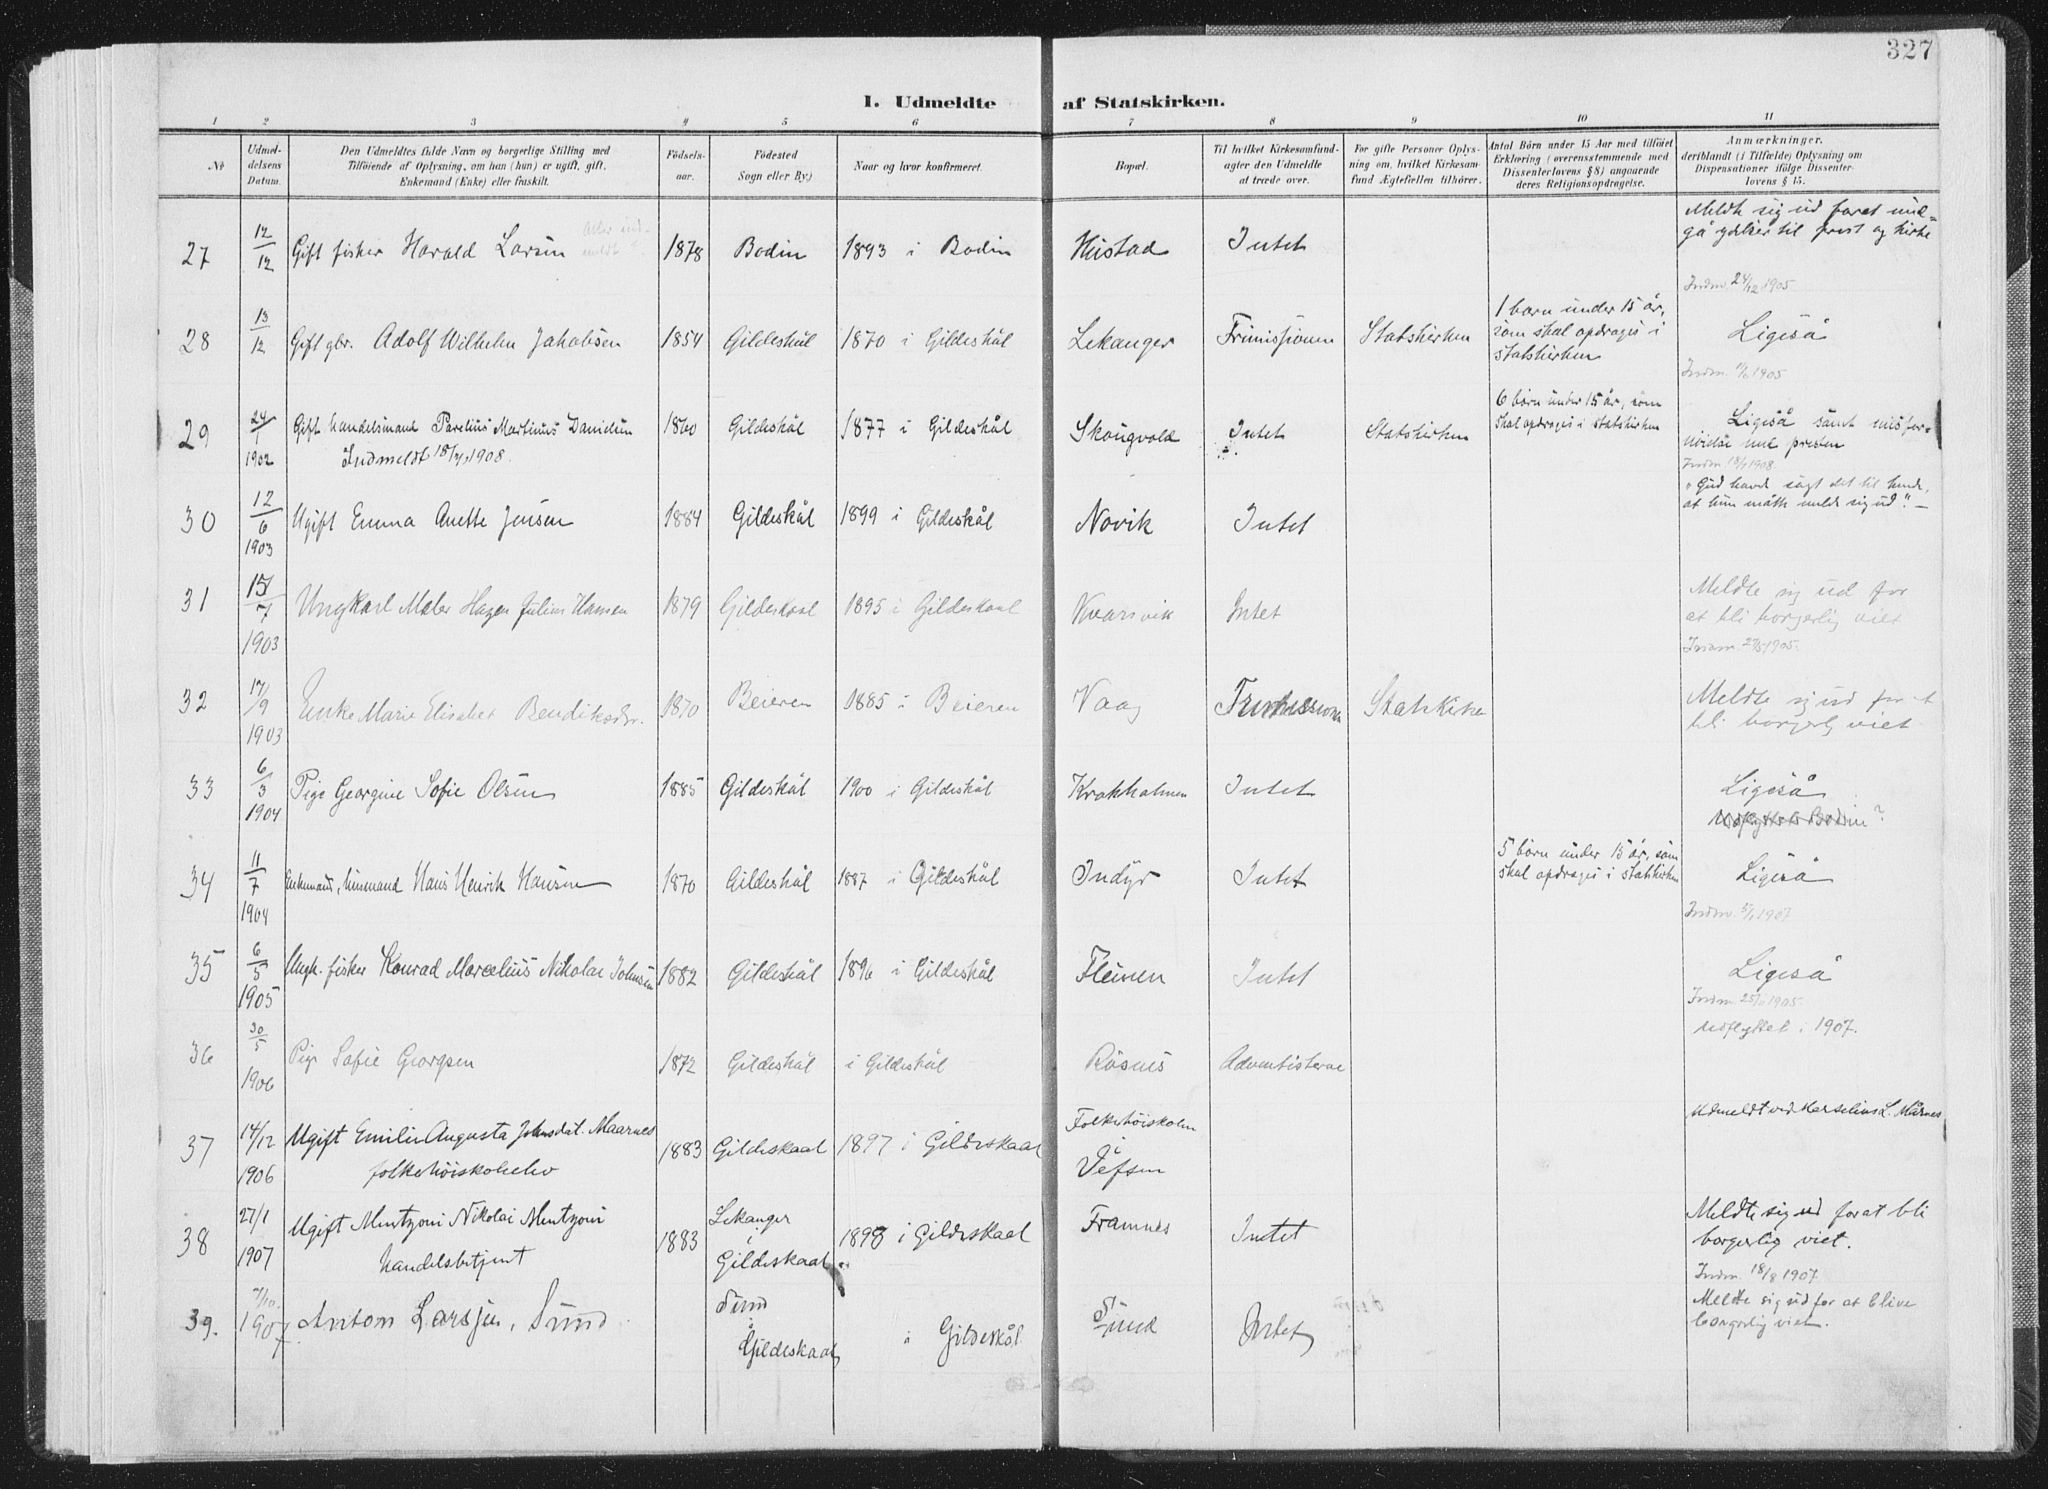 327
I. Udmeldte af Statskirken.
1 2 3 4 5 6 7 8 9 10 11
No
Udmel-
delsens
Datum.
Den Udmeldtes fulde Navn og borgerlige Stilling med
Tilføiende af Oplysning, om han (hun) er ugift, gift,
Enkemand (Enke) eller fraskilt.
Fødsels-
aar.
Fødested
Sogn eller By.)
Naar og hvor konfirmeret.
Bopæl.
Til hvilket Kirkesamfund-
agter den Udmeldte
at træde over.
For gifte Personer Oplys-
ning om, hvilket Kirkesam-
fund Ægtefællen tilhører.
Antal Börn under 15 Aar med tilföiet
Erklæring (overensstemmende med
Dissenterlovens § 8) angaaende
deres Religionsopdragelse.
Anmærkninger,
deriblandt (i Tilfælde) Oplysning om
Dispensationer ifölge Dissenter-
lovens § 15.
27 12/12 Gift fisker Harald Larsen 1878 Bodin 1893 i Bodin Hustad Intet
Meldte sig ud for at und-
gå ydelser til prest og kirke
Indm. 24/12 1905
28 13/12 Gift gbr. Adolf Wilhelm Jakobsen 1854 Gildeskål 1870 i Gildeskål Lekanger Frimissionen Statskirken
1 barn under 15 år,
som skal opdrages i
statskirken
Ligeså
Indm. 1905
29 24/1 1902 Gift handelsmand Parelius Martinus Danielsen 1860 Gildeskål 1877 i Gildeskål Skaugvold Intet Statskirken
Indmeldt 18/7 1908.
6 børn under 15 år, som
skal opdrages i statskirken
Ligeså samt misfor-
nøielse med presten
Indm. 18/7 1908.
30 12/6 1903 Ugift Emma Anette Jensen 1884 Gildeskål 1899 i Gildeskål Novik Intet
"Gud havde sagt det til hende,
at hun måtte melde sig ud". —
31 15/7 1903 Ungkarl Maler Hagen Julius Hansen 1879 Gildeskaal 1895 i Gildeskaal Kvarsvik Intet
Meldte sig ud for
at bli borgerlig viet
Indm. 1905.
32 17/9 1903 Enke Marie Elisabet Bendiksdtr. 1870 Beieren 1885 i Beieren Vaag Frimissionen Statskirken
Meldte sig ud for at
bli borgerlig viet
33 6/3 1904 Pige Georgine Sofie Olsen 1885 Gildeskål 1900 i Gildeskål Krokholmen Intet
Ligeså
Udflyttet t. Bodin?
34 11/7 1904 Enkemand, Hans Henrik Hansen 1870 Gildeskål 1887 i Gildeskål Indyr Intet
5 børn under 15 år, som
skal opdrages i statskirken
Ligeså
Indm. 5/1 1907
35 6/5 1905 Ungk. fisker Konrad Marcelius Nikolai Johnsen 1882 Gildeskål 1896 i Gildeskål Fleinen Intet
Ligeså
Indm. 1905.
Udflyttet i 1907.
36 30/5 1906 Pige Sofie Georgsen 1872 Gildeskål i Gildeskål Røsnes Adventisterne
37 14/12 1906 Ugift Emilie Augusta Johnsdat. Maarnes 1883 Gildeskaal 1897 i Gildeskaal
folkehøiskoleelev
Folkehøiskolen
i Vefsen
Udmeldt ved Marselius L. Mårnes
38 27/1 1907 Ugift Mentzoni Nikolai Mentzoni 1883 1898 i Gildeskaal Framnes Intet
handelsbetjent
Lekanger
i
Gildeskaal
Meldte sig ud for at bli
borgerlig viet.
Indm. 18/8 1907
39. 7/10. 1907. Anton Larsen, Sund
Sund
i Gildeskaal
i Gildeskål Sund Intet
Meldte sig ud for at blive
borgerlig viet.